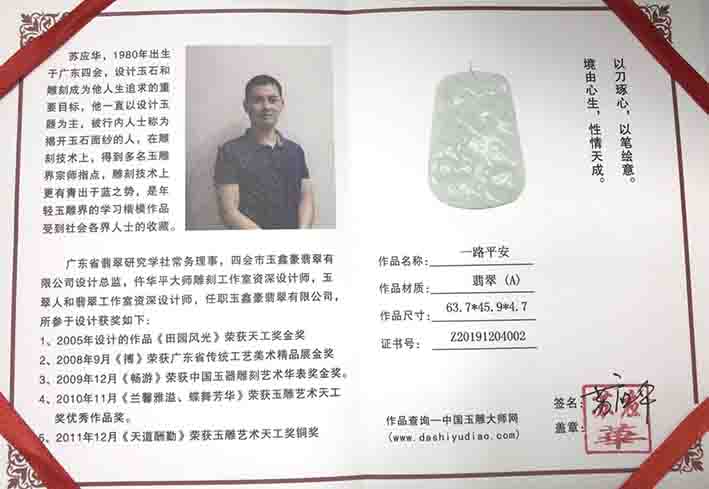 苏应华，1980年出生
于广东四会，设计玉石和
雕刻成为他人生追求的重
要目标，他一直以设计玉
题为主，被行内人士称为
揭开玉石面纱的人，在雕
刻技术上，得到多名玉雕
界宗师指点，雕刻技术上
更有青出于蓝之势，是年
轻玉雕界的学习楷模作品
受到社会各界人士的收藏。
广东省翡翠研究学社常务理事，四会市玉鑫豪翡翠有
限公司设计总监，仵华平大师雕刻工作室资深设计师，玉
翠人和翡翠工作室资深设计师，任职玉鑫豪翡翠有限公司，
所参于设计获奖如下：
1、2005年设计的作品《田园风光》荣获天工奖金奖
2、2008年9月《搏》荣获广东省传统工艺美术精品展金奖
3、2009年12月《畅游》荣获中国玉器雕刻艺术华表奖金奖。
4、2010年11月《兰馨雅溢、蝶舞芳华》荣获玉雕艺术天工
奖优秀作品奖。
5、2011年12月《天道酬勤》荣获玉雕艺术天工奖铜奖
以刀琢心，以笔绘意。
境由心生，性情天成。
作品名称：一路平安
作品材质：翡翠（A）
作品尺寸：63.7*45.9*4.7
证书号：Z20191204002
作品查询—中国玉雕大师网
(www.dashiyudiao.com)
签名：苏应华
盖章：